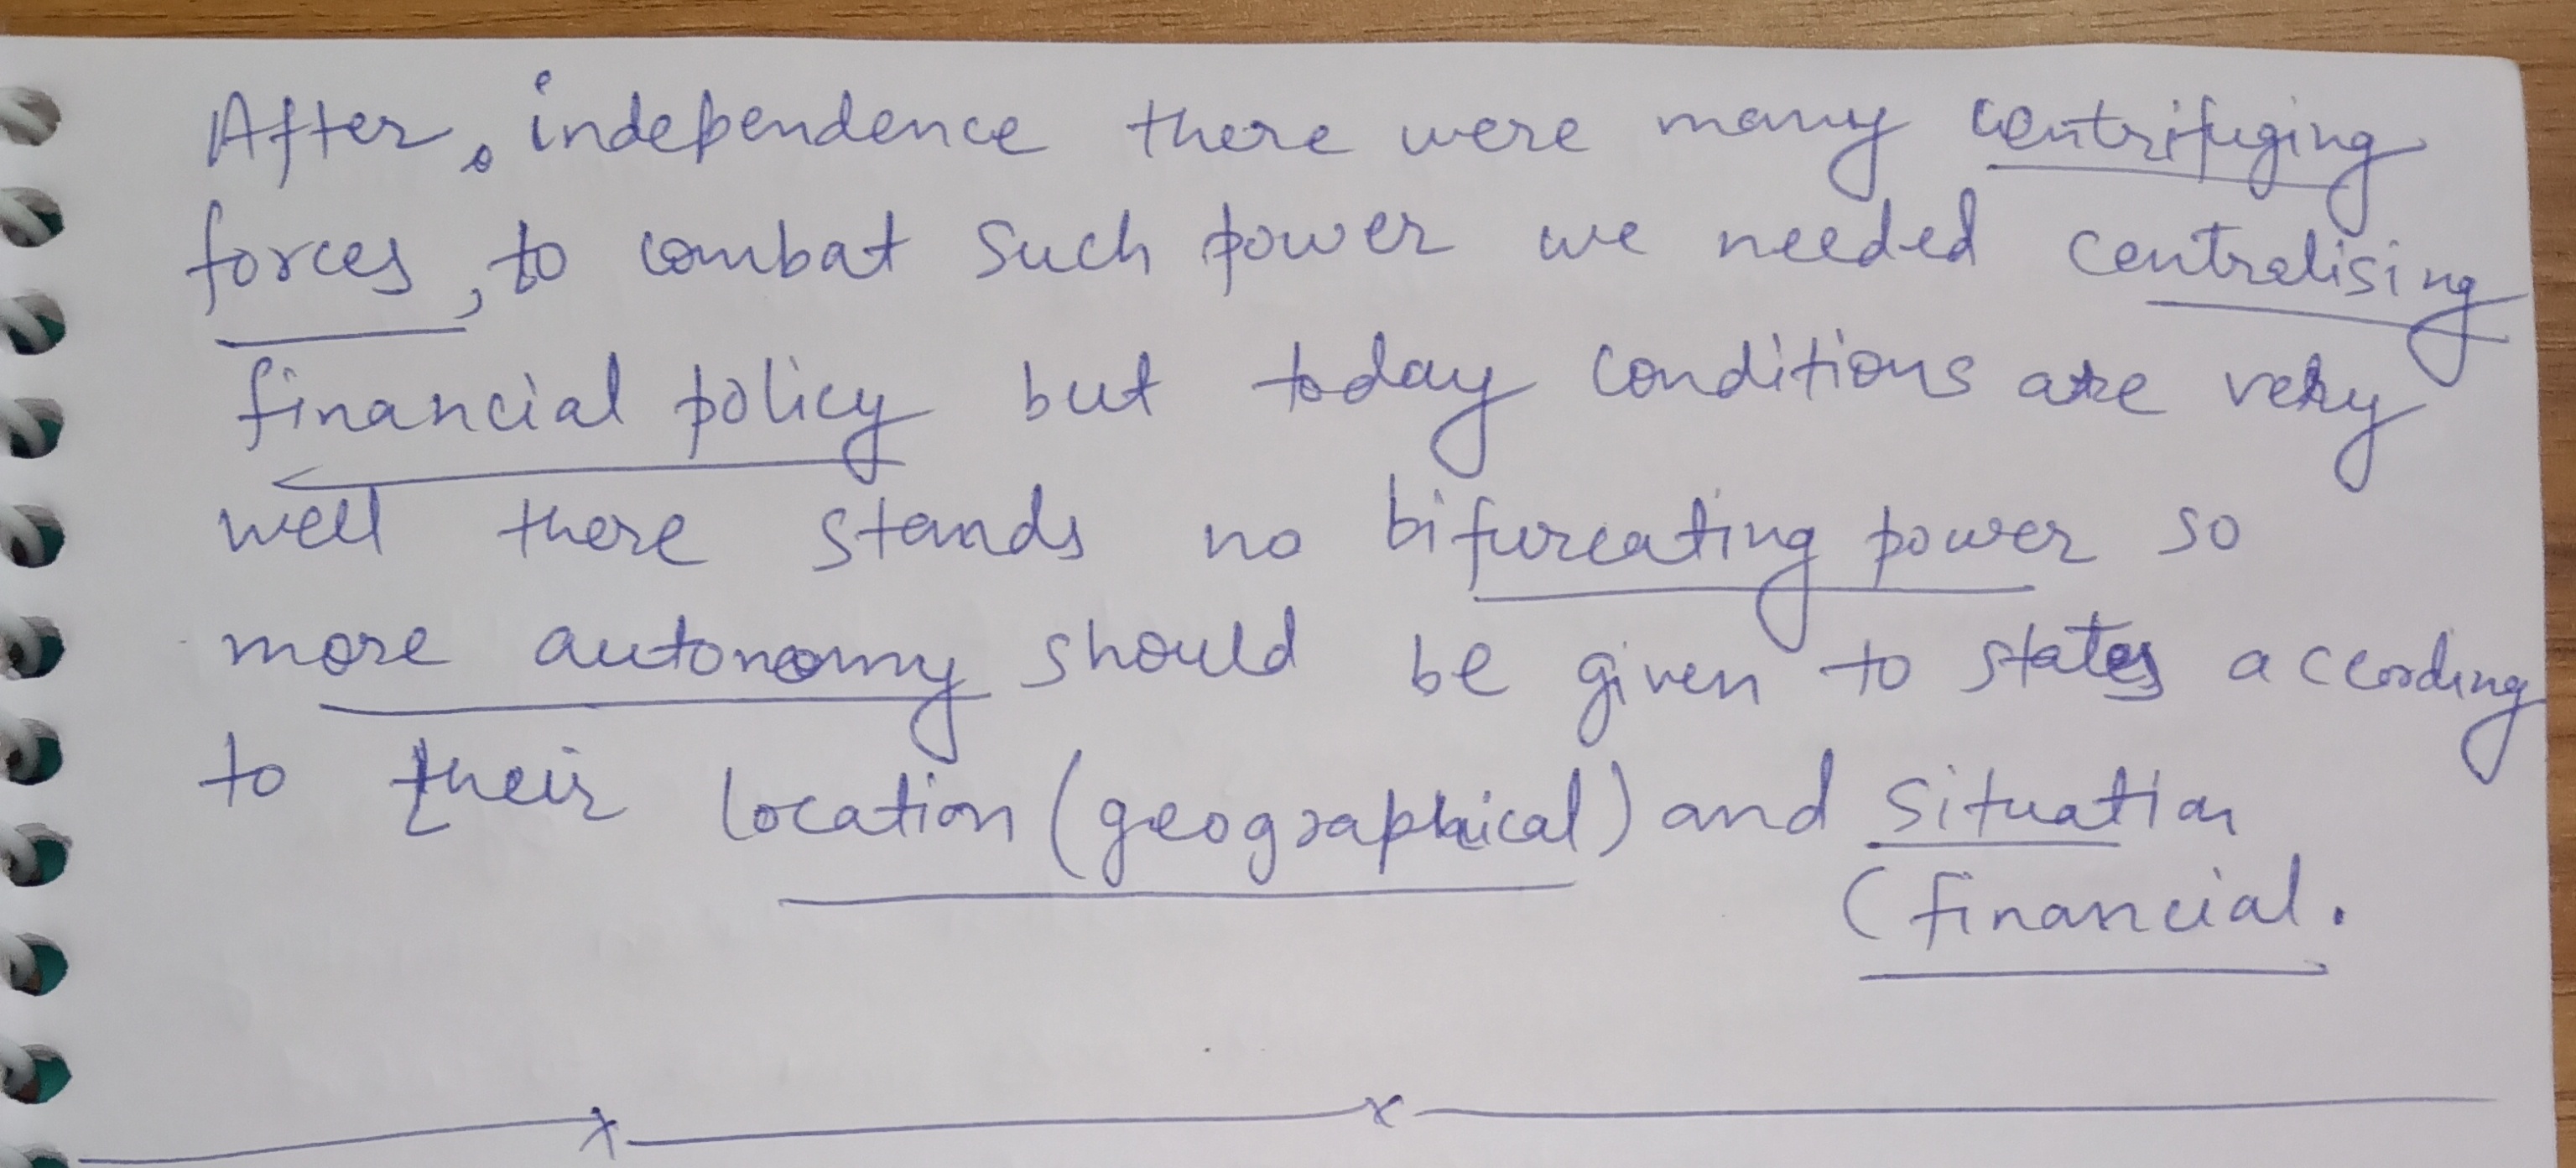 After, independence there were many centrifuging
forces, to combat such power we needed centralising
financial policy but today conditions are very
well there stands no bifurcating power so
more autonomy should be given to states according
to their location (geographical) and situation
(financial.